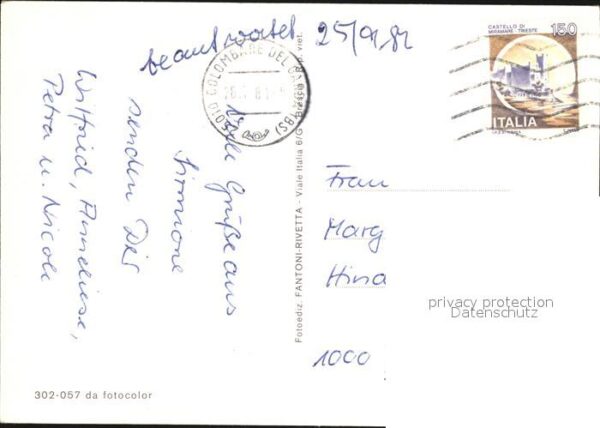 beantwortet 25/9/82
Viele Grüße aus
Sirmione
senden Dir
Wilfried, Anneliese,
Petra u. Nicole
25010 COLOMBARE DEL GARDA (BS)
CASTELLO DI
MIRAMARE - TRIESTE 150
ITALIA
Frau
Marg
Hina
1000
privacy protection
Datenschutz
Fotoediz. FANTONI-RIVETTA - Viale Italia 6/G - Brescia
302-057 da fotocolor